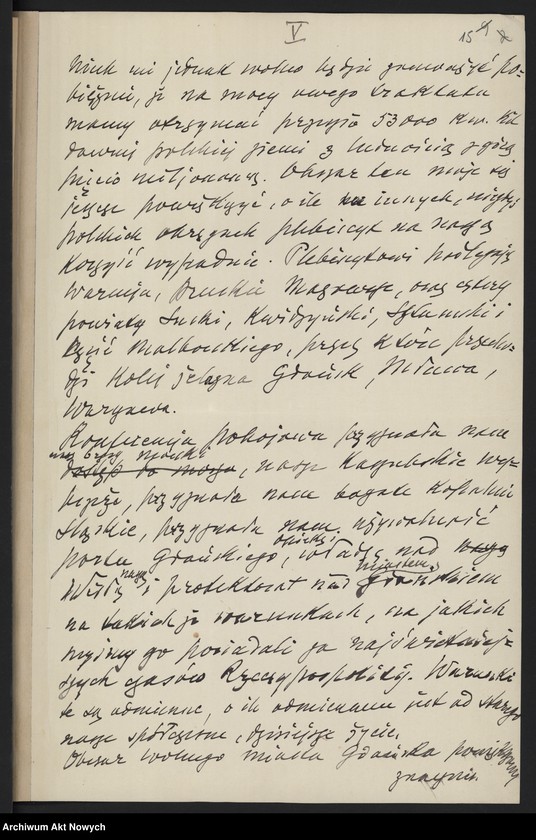 V
15
Niech mi jednak wolno będzie zauważyć po-
bieżnie, że na mocy owego traktatu
mamy otrzymać przeszło 53000 km.
dawnej polskiej ziemi z ludnością z górą
pięcio miljonową. Obszar ten może się
jeszcze powiększyć, o ile w innych, niegdyś
polskich okręgach plebiscyt na naszą
korzyść wypadnie. Plebiscytowi podlegają
Warmja, Pruskie Mazowsze, oraz cztery
powiaty Suski, Kwidzyński, Sztumski i
część Malborskiego, przez które przecho-
dzi kolej żelazna Gdańsk, Mława,
Warszawa.
Konferencja pokojowa przyznała nam
morski
dostęp do morza, nasze Kaszubskie wy-
brzeże, przyznała nam bogate kopalnie
Śląskie, przyznała nam używalność
opiekę i
portu Gdańskiego, władzę nad
naszą miastem
Wisłą i protektorat nad Gdańskiem
na takich że warunkach, na jakich
myśmy go posiadali za najświetniej-
szych czasów Rzeczypospolitej. Warunki
te są odmienne, o ile odmiennem jest od starego
nasze spółczesne, dzisiejsze życie.
Obszar wolnego miasta Gdańska powiększony
znacznie.
Archiwum Akt Nowych